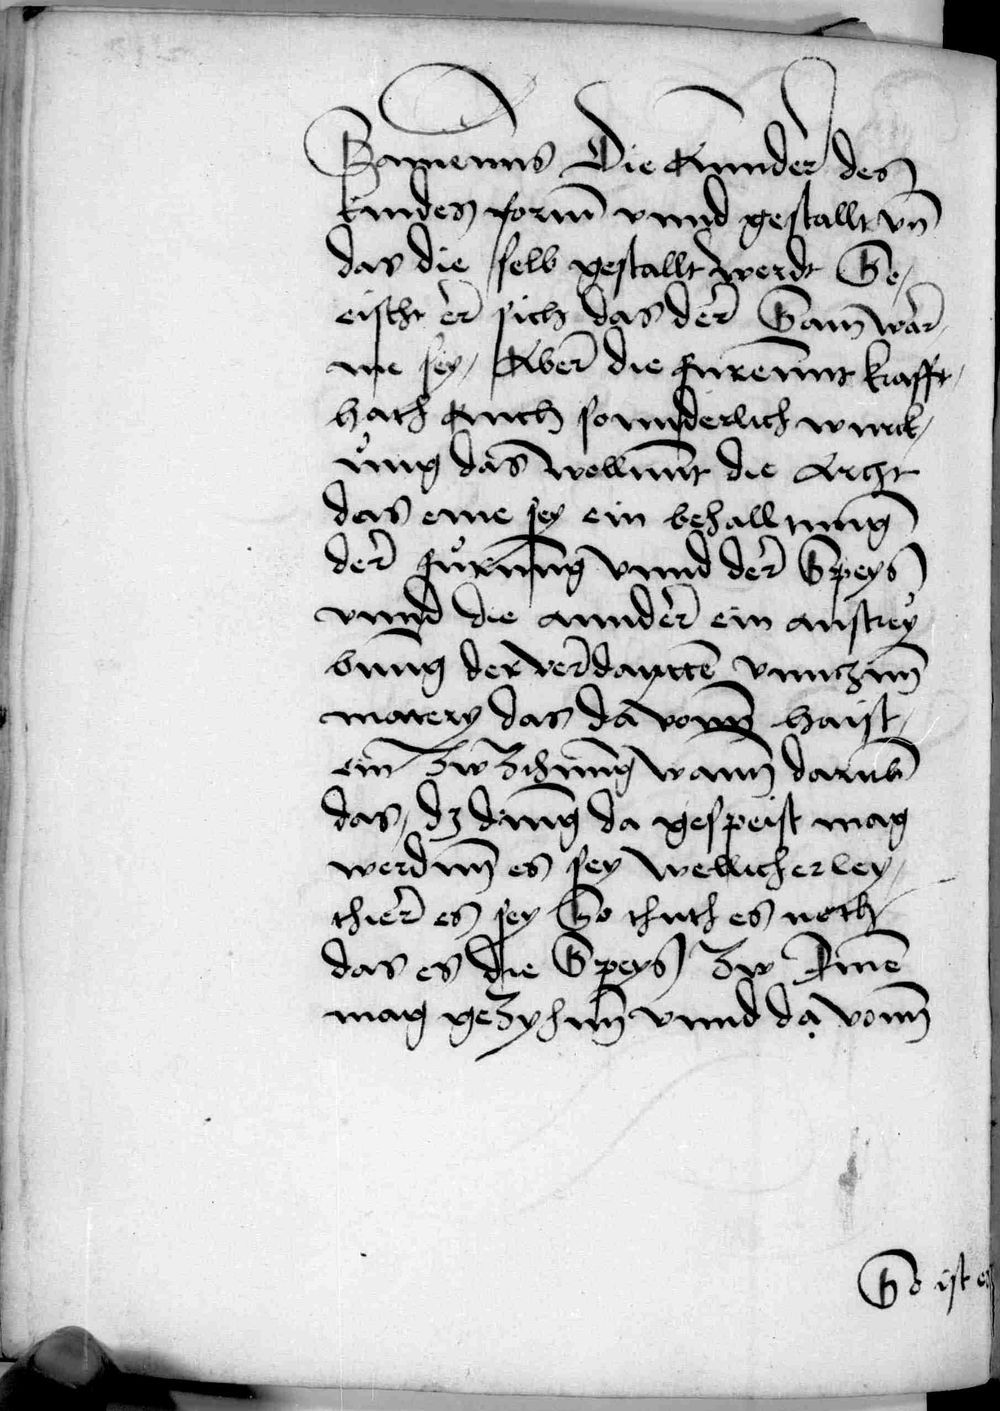 Samenns Die Annder des
kindes form vnnd gestallt vn̄
das die selb gestallt werdt So,
eischt er sich das der Sam war,
me sey, Aber die furennt krafft,
hath Auch sonnderlich wurck,
ung das wellennt die Arczt
das eine sey ein behalltung
der furung vnnd der Speys
vnnd die annder ein austrey
bung der verdauttē vnnczim̄
matery das da vonn haist,
ein Zw Zihung wann darvmb
das, dz ding da gespeist mag
werdenn es sey wellicherley,
thier es sey So thuth es noth
das es die Speys Zw Ime
mag geZyhenn vnnd da vonn
So ist es